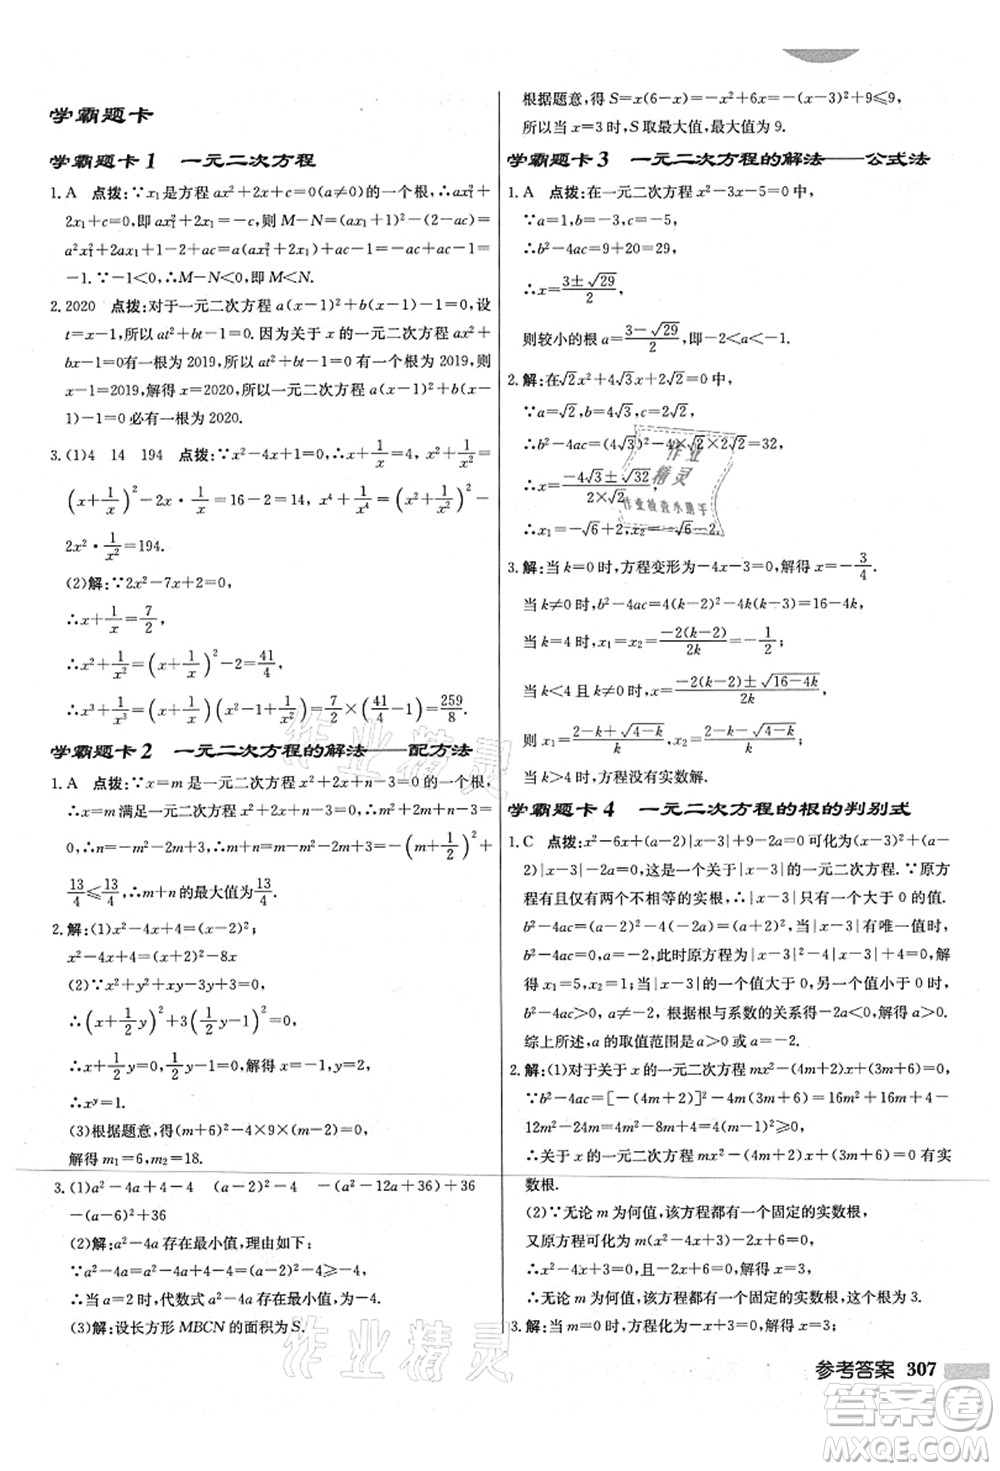 学霸题卡
学霸题卡1 一元二次方程
1. A 点拨:∵x₁是方程 ax²+2x+c=0(a≠0)的一个根,∴ax₁²+
2x₁+c=0,即 ax₁²+2x₁=-c,则 M-N=(ax₁+1)²-(2-ac)=
a²x₁²+2ax₁+1-2+ac=a(ax₁²+2x₁)+ac-1=-ac+ac-1=
-1.∵-1<0,∴M-N<0,即 M<N.
2. 2020 点拨:对于一元二次方程 a(x-1)²+b(x-1)-1=0,设
t=x-1,所以 at²+bt-1=0.因为关于 x 的一元二次方程 ax²+
bx-1=0有一根为2019,所以 at²+bt-1=0有一个根为2019,则
x-1=2019,解得 x=2020,所以一元二次方程 a(x-1)²+b(x-
1)-1=0必有一根为2020.
3. (1)4 14 194 点拨:∵x²-4x+1=0,∴x+1/x=4,x²+1/x²=
(x+1/x)²-2x·1/x=16-2=14,x⁴+1/x⁴=(x²+1/x²)²-
2x²·1/x²=194.
(2)解:∵2x²-7x+2=0,
∴x+1/x=7/2,
∴x²+1/x²=(x+1/x)²-2=41/4,
∴x³+1/x³=(x+1/x)(x²-1+1/x²)=7/2×(41/4-1)=259/8.
学霸题卡2 一元二次方程的解法——配方法
1. A 点拨:∵x=m 是一元二次方程 x²+2x+n-3=0的一个根,
∴x=m 满足一元二次方程 x²+2x+n-3=0,∴m²+2m+n-3=
0,∴n=-m²-2m+3,∴m+n=-m²-m+3=-(m+1/2)²+
13/4≤13/4,∴m+n的最大值为13/4.
2. 解:(1)x²-4x+4=(x-2)²;
x²-4x+4=(x+2)²-8x
(2)∵x²+y²+x-y+1/2=0,
∴(x+1/2)²+(y-1/2)²=0,
∴x+1/2=0,y-1/2=0,解得 x=-1/2,y=1/2.
∴xy=1.
(3)根据题意,得(m+6)²-4×9×(m-2)=0,
解得 m₁=6,m₂=18.
3. (1)a²-4a+4-4 (a-2)²-4 -(a²-12a+36)+36
-(a-6)²+36
(2)解:a²-4a 存在最小值,理由如下:
∵a²-4a=a²-4a+4-4=(a-2)²-4≥-4,
∴当 a=2 时,代数式 a²-4a 存在最小值为-4.
(3)解:设长方形 MBCN 的面积为 S.
根据题意,得 S=x(6-x)=-x²+6x=-(x-3)²+9≤9,
所以当 x=3时,S 取最大值,最大值为 9.
学霸题卡3 一元二次方程的解法——公式法
1. A 点拨:在一元二次方程 x²-3x-5=0中,
∵a=1,b=-3,c=-5,
∴b²-4ac=9+20=29,
∴x=(3±√29)/2,
则较小的根 a=(3-√29)/2,即-2<a<-1.
2. 解:在√2x²+4√3x+2√2=0 中,
∵a=√2,b=4√3,c=2√2,
∴b²-4ac=(4√3)²-4×√2×2√2=32,
∴x=(-4√3±√32)/(2×√2),
∴x₁=-√6+2,x₂=-√6-2.
3. 解:当 k=0 时,方程变形为-4x-3=0,解得 x=-3/4.
当 k≠0 时,b²-4ac=4(k-2)²-4k(k-3)=16-4k,
当 k=4 时,x₁=x₂=-2(k-2)/2k=-1/2;
当 k<4 且 k≠0 时,x=(-2(k-2)±√(16-4k))/2k,
则 x₁=(2-k+√(4-k))/k,x₂=(2-k-√(4-k))/k;
当 k>4 时,方程没有实数解.
学霸题卡4 一元二次方程的根的判别式
1. C 点拨:x²-6x+(a-2)|x-3|+9-2a=0 可化为(x-3)²+(a-
2)|x-3|-2a=0,这是一个关于|x-3|的一元二次方程.∵原方
程有且仅有两个不相等的实根,∴|x-3|只有一个大于0的值.
b²-4ac=(a-2)²-4(-2a)=(a+2)².当|x-3|有唯一值时,
b²-4ac=0,a=-2,此时原方程为|x-3|²-4|x-3|+4=0,
解得 x₁=5,x₂=1;当|x-3|的一个值大于0,另一个值小于 0 时,
b²-4ac>0,a≠-2.根据根与系数的关系得-2a<0,解得 a>0.
综上所述,a 的取值范围是 a>0或 a=-2.
2. 解:(1)对于关于 x 的一元二次方程 mx²-(4m+1)x+3m+3=0,
∵b²-4ac=[-(4m+2)]²-4m(3m+6)=16m²+16m+4-
12m²-24m=4m²-8m+4=4(m-1)²≥0,
∴关于 x 的一元二次方程 mx²-(4m+2)x+(3m+6)=0有实
数根.
(2)∵无论 m 为何值,该方程都有一个固定的实数根,
又原方程可化为 m(x²-4x+3)-2x+6=0,
∴无论 m 为何值,该方程都有一个固定的实数根,这个根为 3.
3. 解:当 m=0 时,方程化为-x+3=0,解得 x=3;
参考答案 307
作业精灵
作业检查小助手
作业精灵
作业精灵
答案圈
MXQE.COM